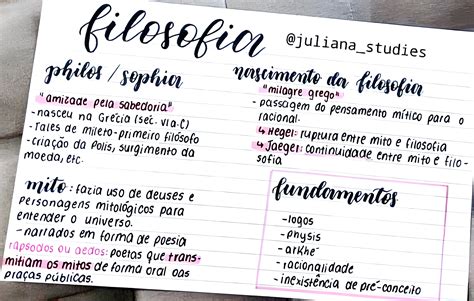 filosofia
@juliana_studies
philos/sophia
"amizade pela sabedoria"
-nasceu na Grécia (séc. VI a.C)
-Tales de Mileto-primeiro filósofo
-criação da Pólis, surgimento da
moeda, etc.
nascimento da filosofia
"milagre grego"
-passagem do pensamento mítico para o
racional.
↳ Hegel: ruptura entre mito e filosofia
↳ Jaeger: continuidade entre mito e filo-
sofia
mito: fazia uso de deuses e
personagens mitológicos para
entender o universo.
-narrados em forma de poesia
rapsodos ou aedos: poetas que trans-
mitiam os mitos de forma oral nas
praças públicas.
fundamentos
-logos
-physis
-arkhé
-racionalidade
-inexistência de pré-conceito